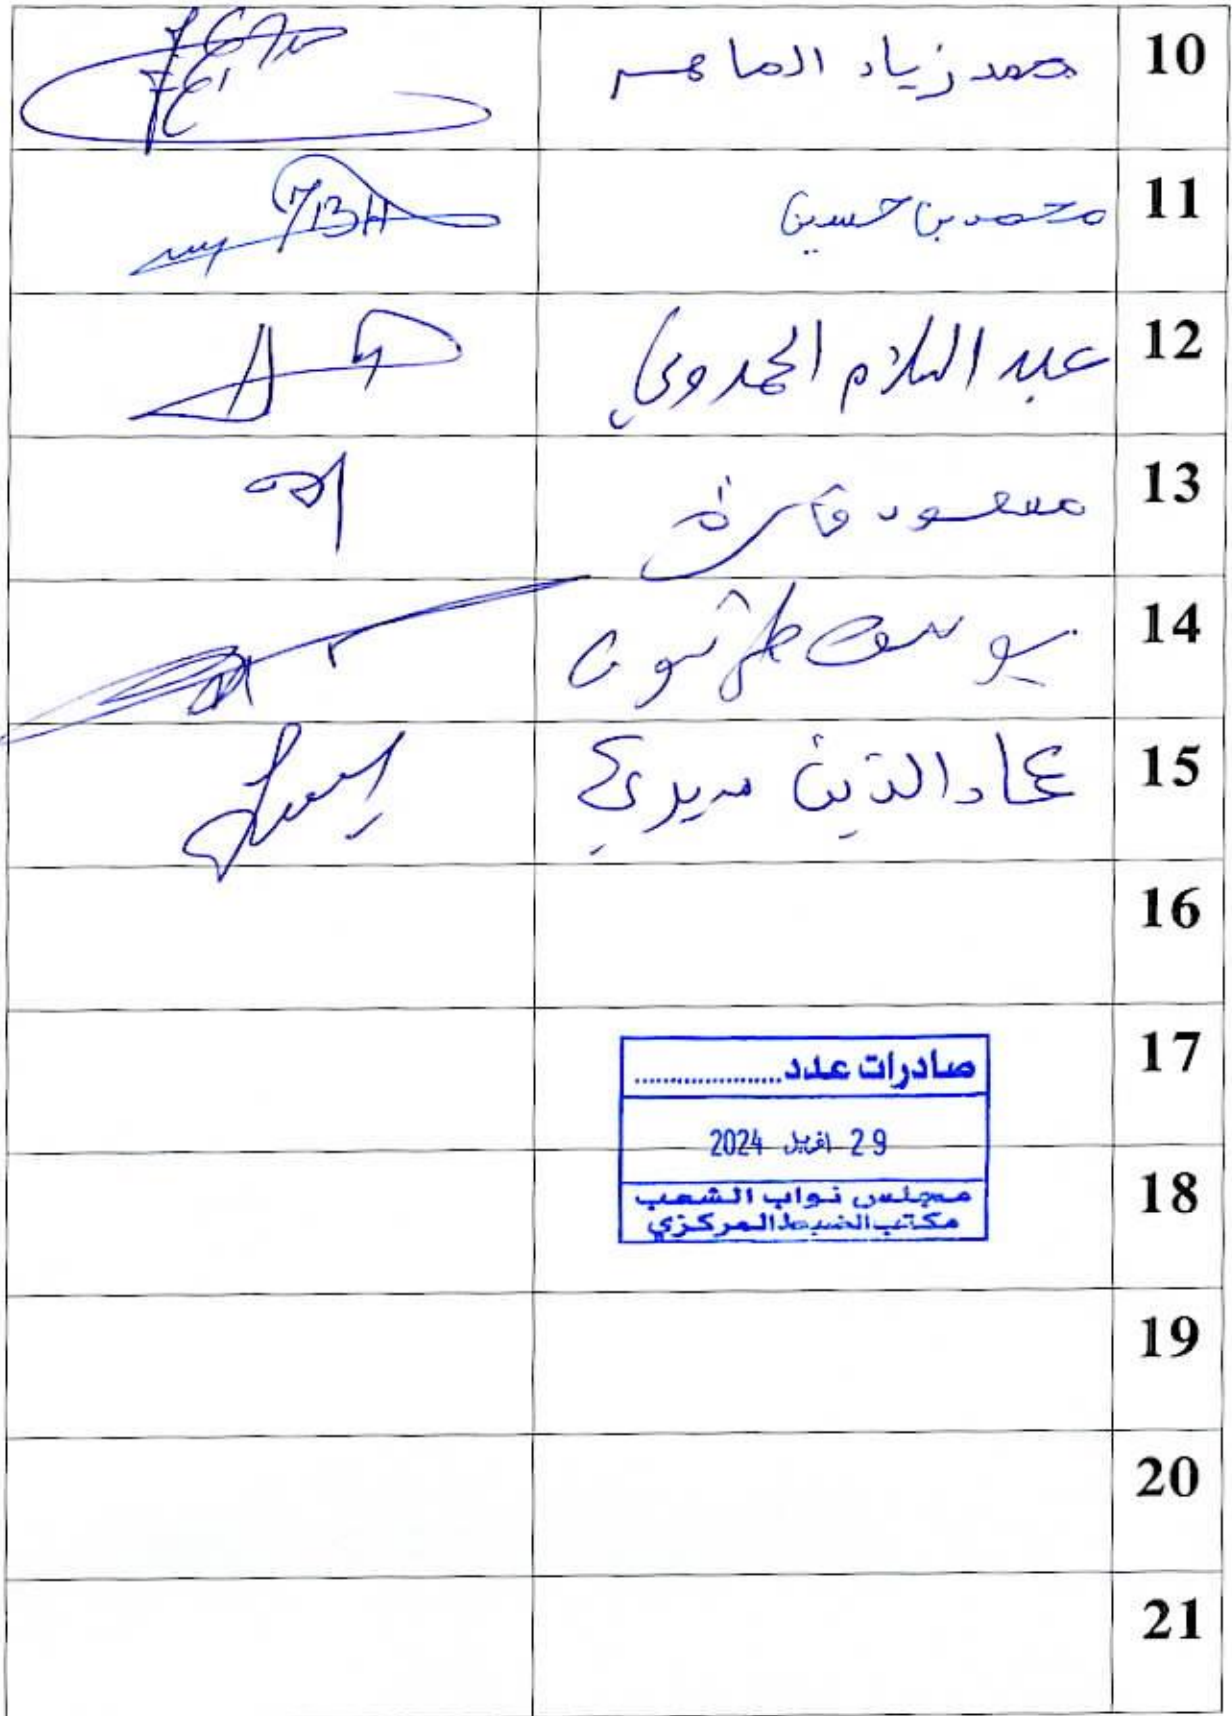 10 محمد زياد الماهر
11 محمد بن حسين
12 عبد السلام الحمروني
13 مسعود قايرة
14 يوسف طرشون
15 عماد الدين سديري
16
17
صادرات عدد
29 افريل 2024
18
مجلس نواب الشعب
مكتب الضبط المركزي
19
20
21